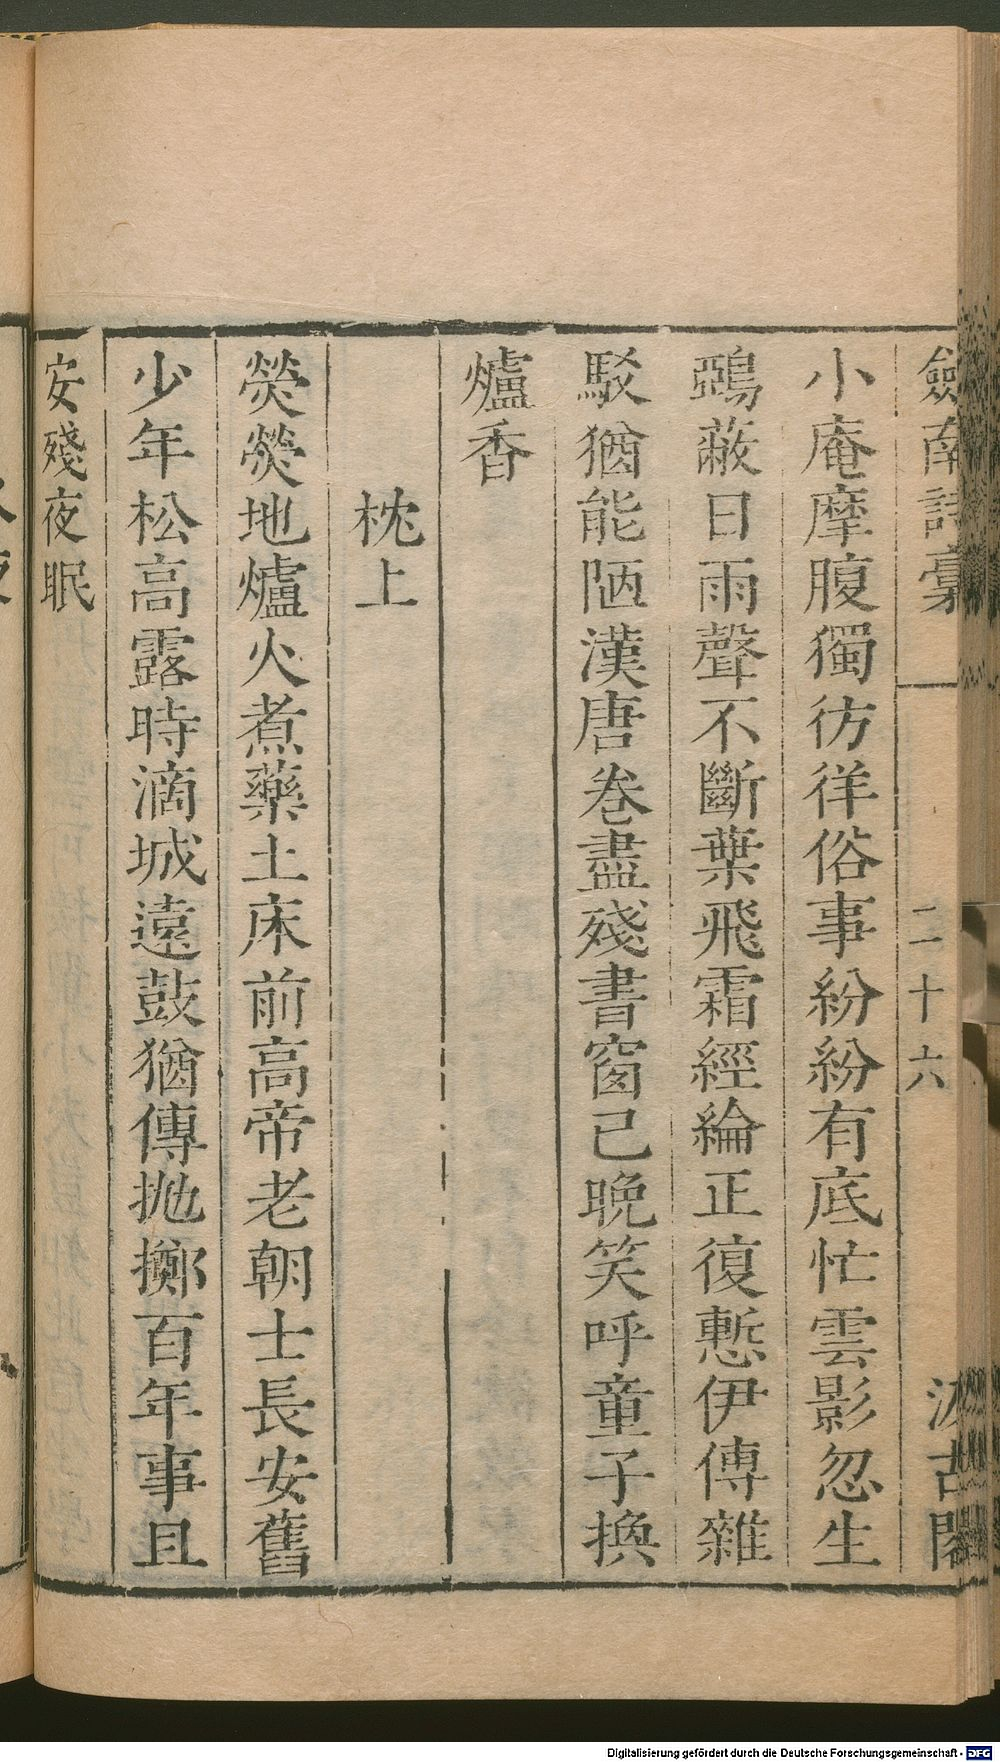 劍南詩稾
二十六
汲古閣
小庵摩腹獨彷徉俗事紛紛有底忙雲影忽生
鵶蔽日雨聲不斷葉飛霜經綸正復慙伊傅雜
駁猶能陋漢唐卷盡殘書窗已晚笑呼童子換
爐香
枕上
熒熒地爐火煮藥土床前高帝老朝士長安舊
少年松高露時滴城遠鼓猶傳拋擲百年事且
安殘夜眠
Digitalisierung gefördert durch die Deutsche Forschungsgemeinschaft - DFG